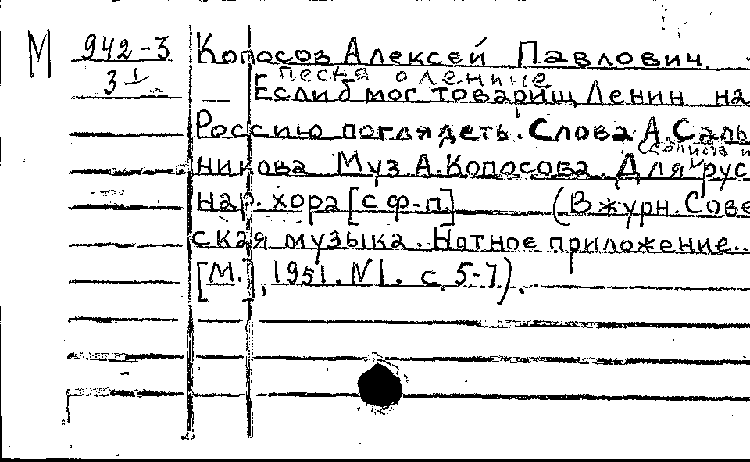 М 942-3 Колосов Алексей Павлович.
3 1
песня о Ленине
— Если б мог товарищ Ленин на
Россию поглядеть. Слова А. Саль
никова Муз А. Колосова. Для рус
нар. хора [с ф-п.] (В журн. Сове
ская музыка. Нотное приложение..
[М.], 1951. № 1. с. 5-7).